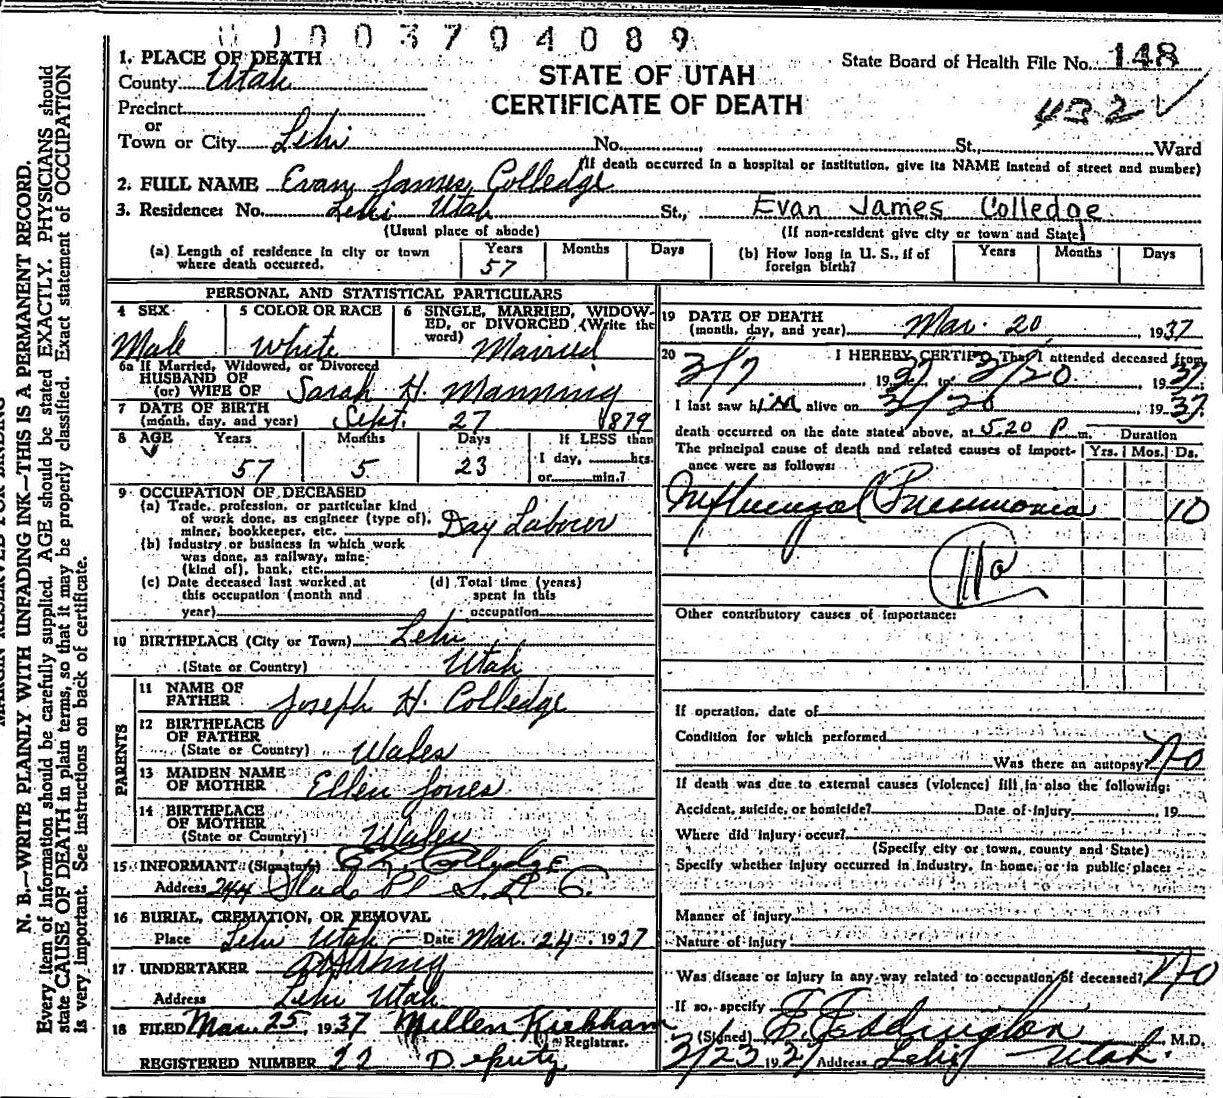 01003704089
1. PLACE OF DEATH
County Utah
Precinct
or
Town or City Lehi No. St., Ward
STATE OF UTAH
CERTIFICATE OF DEATH
State Board of Health File No. 148
432
(If death occurred in a hospital or institution, give its NAME instead of street and number)
2. FULL NAME Evan James Colledge
3. Residence: No. Lehi Utah St., Evan James Colledge
(Usual place of abode) (If non-resident give city or town and State)
(a) Length of residence in city or town where death occurred. Years 57 Months Days
(b) How long in U. S., if of foreign birth? Years Months Days
PERSONAL AND STATISTICAL PARTICULARS
4 SEX Male
5 COLOR OR RACE White
6 SINGLE, MARRIED, WIDOWED, or DIVORCED (Write the word) Married
6a If Married, Widowed, or Divorced
HUSBAND OF
(or) WIFE OF Sarah H. Manning
7 DATE OF BIRTH
(month, day, and year) Sept. 27 1879
8 AGE Years 57 Months 5 Days 23
If LESS than
1 day, hrs.
or min.?
9 OCCUPATION OF DECEASED
(a) Trade, profession, or particular kind
of work done, as engineer (type of),
miner, bookkeeper, etc. Day Laborer
(b) Industry or business in which work
was done, as railway, mine
(kind of), bank, etc.
(c) Date deceased last worked at
this occupation (month and
year)
(d) Total time (years)
spent in this
occupation
10 BIRTHPLACE (City or Town) Lehi
(State or Country) Utah
PARENTS
11 NAME OF
FATHER Joseph H. Colledge
12 BIRTHPLACE
OF FATHER
(State or Country) Wales
13 MAIDEN NAME
OF MOTHER Ellen Jones
14 BIRTHPLACE
OF MOTHER
(State or Country) Wales
15 INFORMANT (Signature) Colledge
Address 244 Pl S. L. C.
16 BURIAL, CREMATION, OR REMOVAL
Place Lehi Utah Date Mar. 24, 1937
17 UNDERTAKER
Address Lehi Utah
18 FILED Mar. 25, 1937 Millen Kirkham
Registrar.
REGISTERED NUMBER 22 Deputy
19 DATE OF DEATH
(month, day, and year) Mar. 20, 1937
20 I HEREBY CERTIFY, That I attended deceased from
3/7 1937 to 3/20 1937
I last saw him alive on 3/20, 1937.
death occurred on the date stated above, at 5.20 P m. Duration
The principal cause of death and related causes of importance were as follows: Yrs. Mos. Ds.
Influenzal Pneumonia 10
11a
Other contributory causes of importance:
If operation, date of
Condition for which performed
Was there an autopsy? No
If death was due to external causes (violence) fill in also the following:
Accident, suicide, or homicide? Date of injury , 19
Where did injury occur?
(Specify city or town, county and State)
Specify whether injury occurred in industry, in home, or in public place:
Manner of injury
Nature of injury
Was disease or injury in any way related to occupation of deceased? No
If so, specify
(Signed) E. Eddington M.D.
3/23 19 Address Lehi Utah.
MARGIN RESERVED FOR BINDING
N. B.—WRITE PLAINLY WITH UNFADING INK—THIS IS A PERMANENT RECORD.
Every item of information should be carefully supplied. AGE should be stated EXACTLY. PHYSICIANS should
state CAUSE OF DEATH in plain terms, so that it may be properly classified. Exact statement of OCCUPATION
is very important. See instructions on back of certificate.